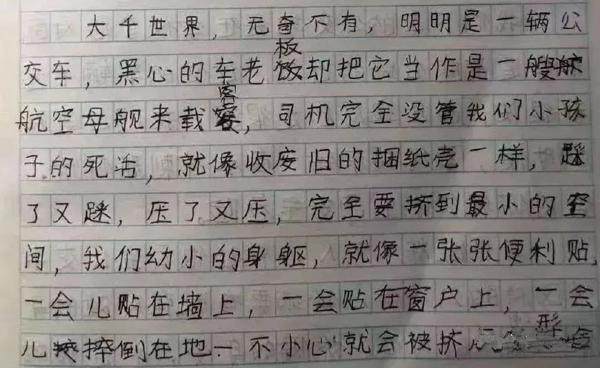 大千世界，无奇不有，明明是一辆公
交车，黑心的车老板却把它当作是一艘
航空母舰来载客，司机完全没管我们小孩
子的死活，就像收废旧的捆纸壳一样，踩
了又踩，压了又压，完全要挤到最小的空
间，我们幼小的身躯，就像一张张便利贴，
一会儿贴在墙上，一会贴在窗户上，一会
儿摔倒在地一不小心就会被挤形